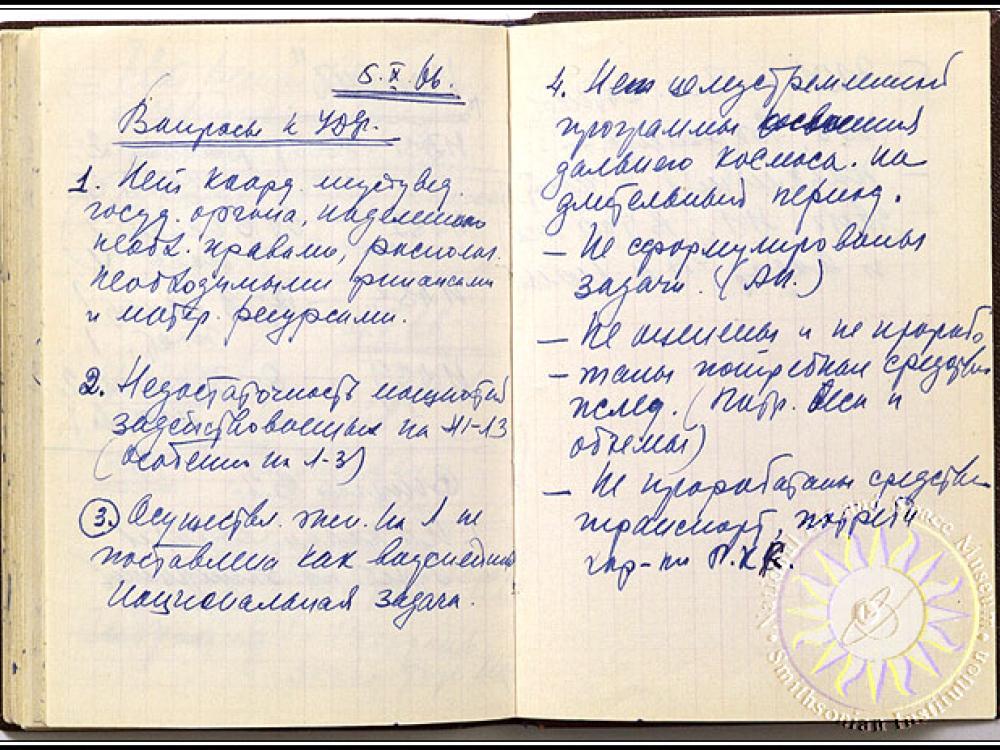 5.X.66.
Вопросы к УДФ.
1. Нет коорд. межувед.
госуд. органа, наделенного
необх. правами, располаг.
необходимыми финансами
и матер. ресурсами.
2. Недостаточность мощностей
задействованных на Н1-Л3
(особенно на Л-3)
3. Осуществл. эксп. на Л не
поставлена как важнейшая
национальная задача.
4. Нет целеустремленной
программы освоения
дальнего космоса на
длительный период.
- Не сформулированы
задачи. (АН.)
- Не и не прорабо
- таны потребные средства
послед. (Веса и
объемы)
- Не проработаны средства
транспорт, потребн
хар-ки
National Air and Space Museum
Smithsonian Institution